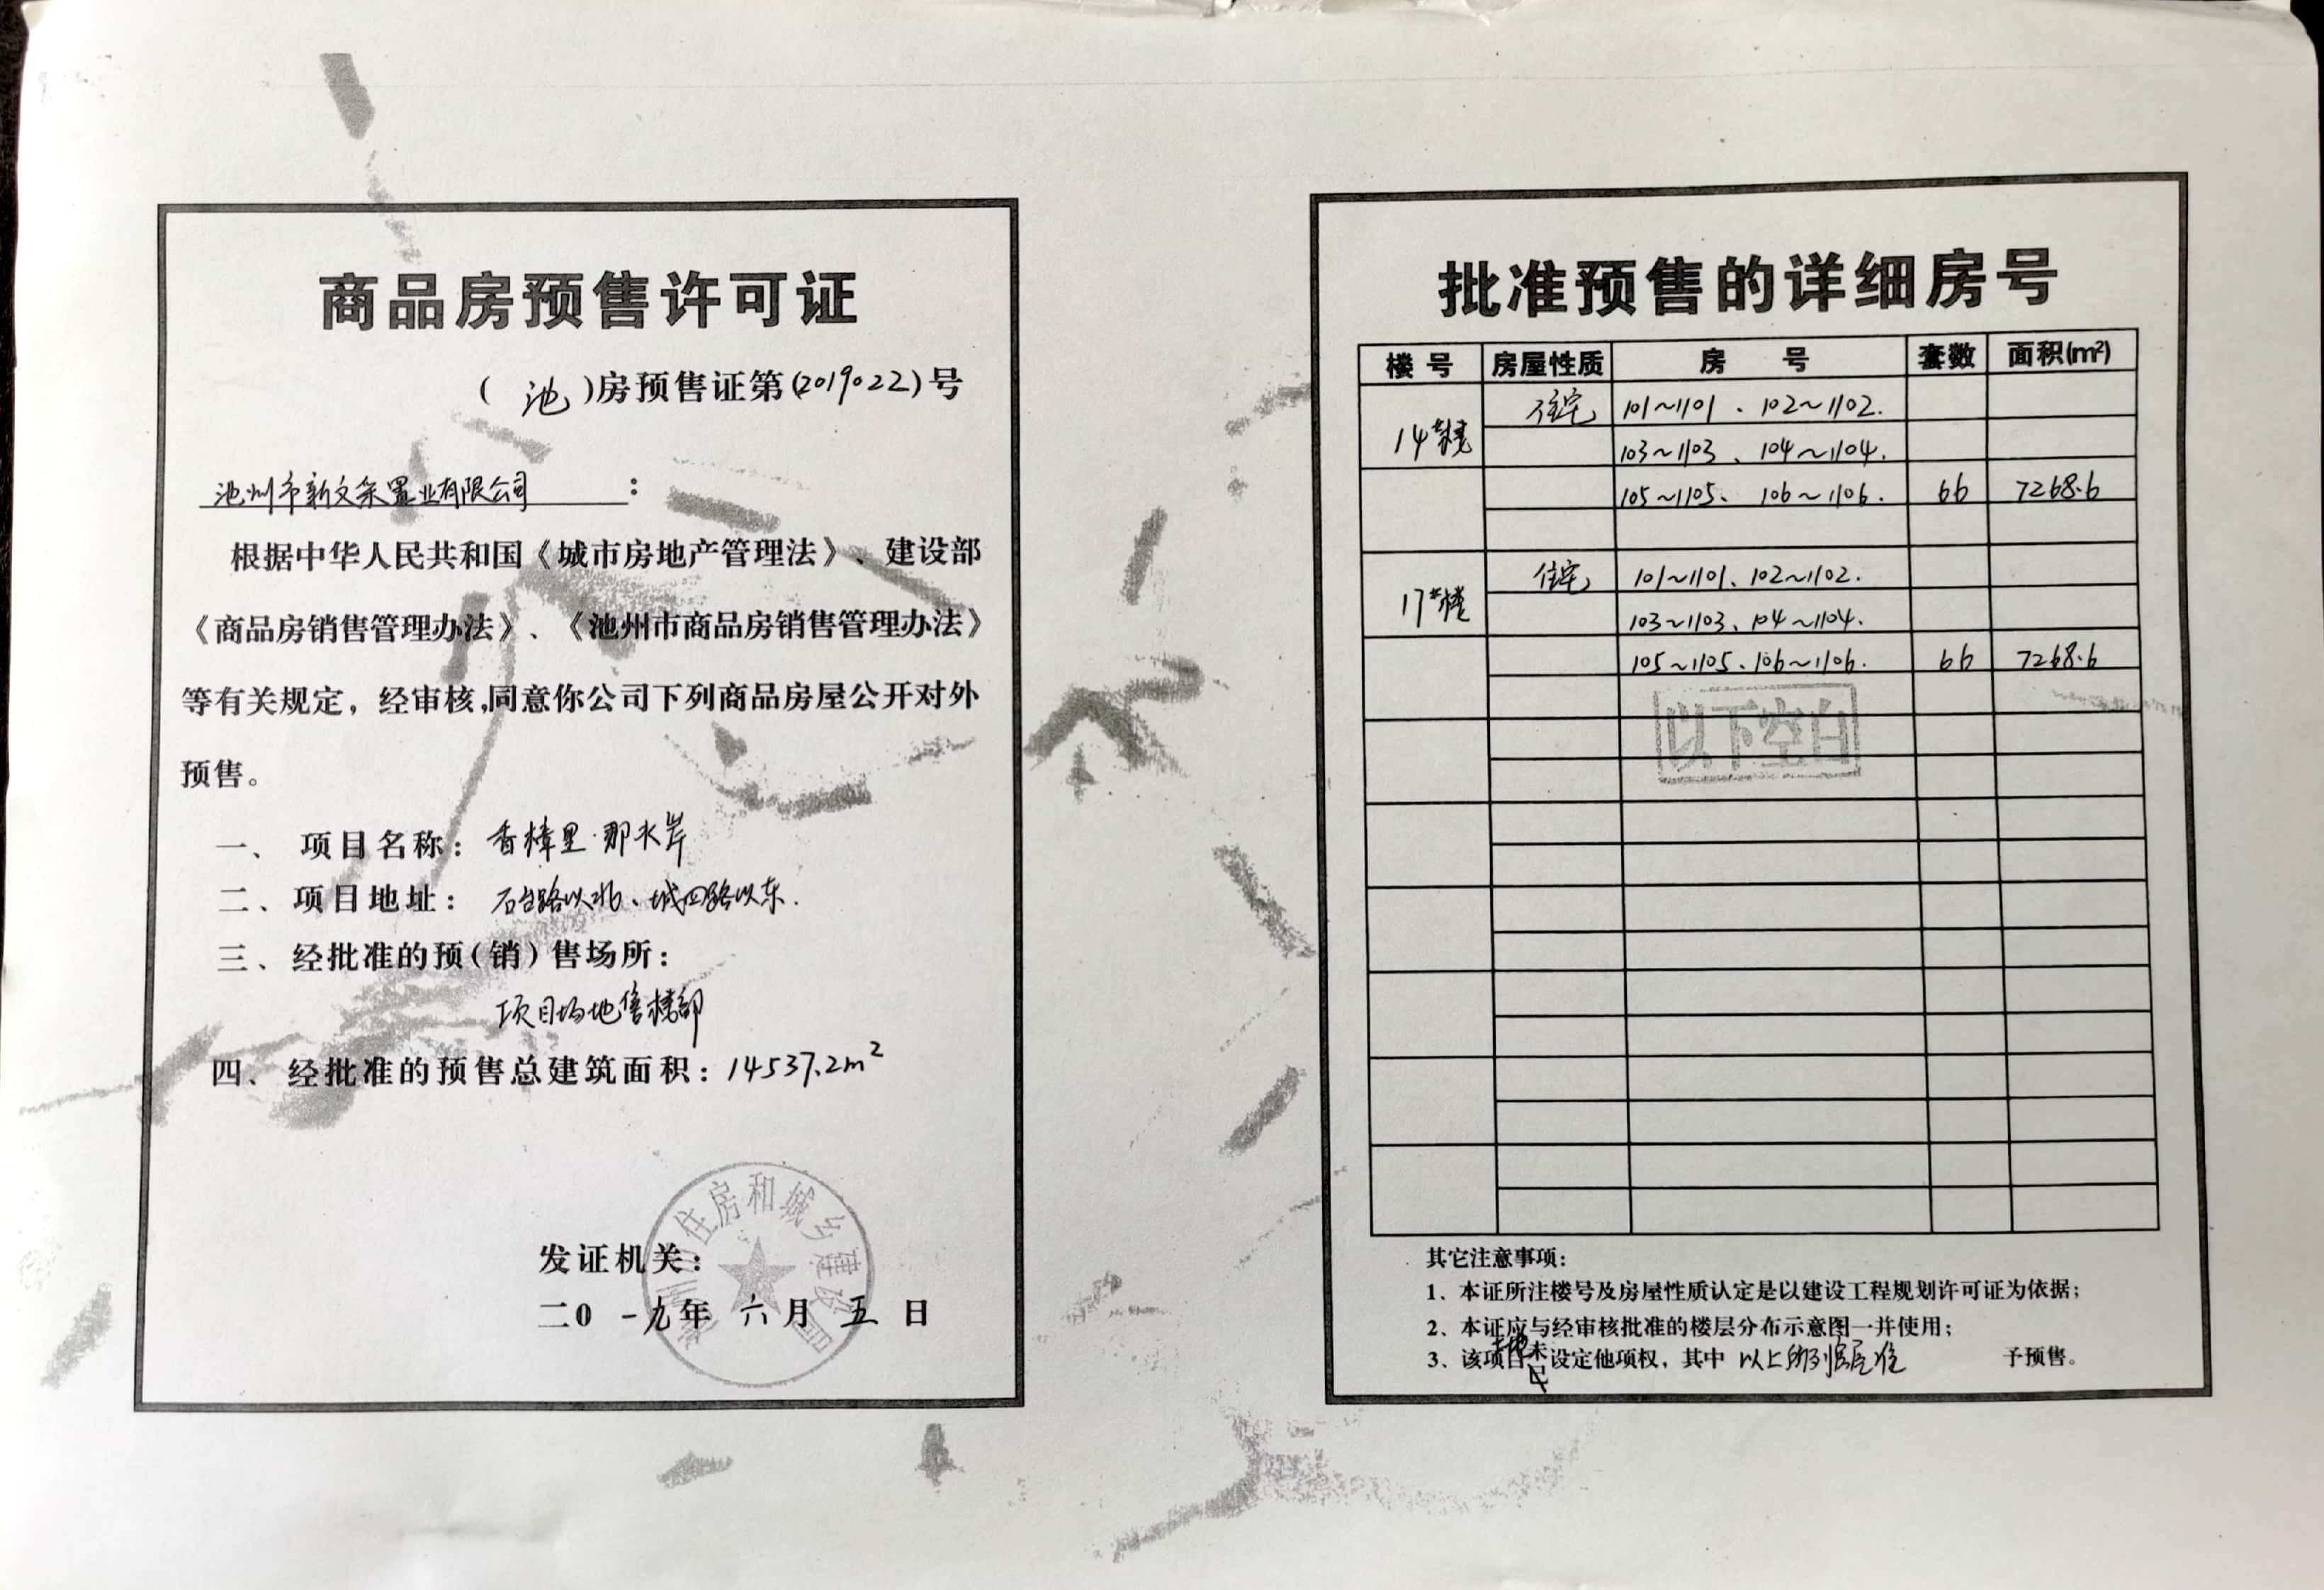 商品房预售许可证
(池)房预售证第(2019022)号
池州市新文采置业有限公司:
根据中华人民共和国《城市房地产管理法》、建设部
《商品房销售管理办法》、《池州市商品房销售管理办法》
等有关规定，经审核,同意你公司下列商品房屋公开对外
预售。
一、项目名称:香樟里·那水岸
二、项目地址:石台路以北、城西路以东.
三、经批准的预(销)售场所:
项目场地售楼部
四、经批准的预售总建筑面积:14537.2m²
发证机关:
二0一九年六月五日
池州市住房和城乡建设局
批准预售的详细房号
楼号 房屋性质 房号 套数 面积(m²)
14#楼 住宅 101~1101、102~1102.
103~1103、104~1104.
105~1105、106~1106. 66 7268.6
17#楼 住宅 101~1101、102~1102.
103~1103、104~1104.
105~1105、106~1106. 66 7268.6
以下空白
其它注意事项:
1、本证所注楼号及房屋性质认定是以建设工程规划许可证为依据;
2、本证应与经审核批准的楼层分布示意图一并使用;
3、该项目土地未设定他项权，其中 以上所列房屋准 予预售。